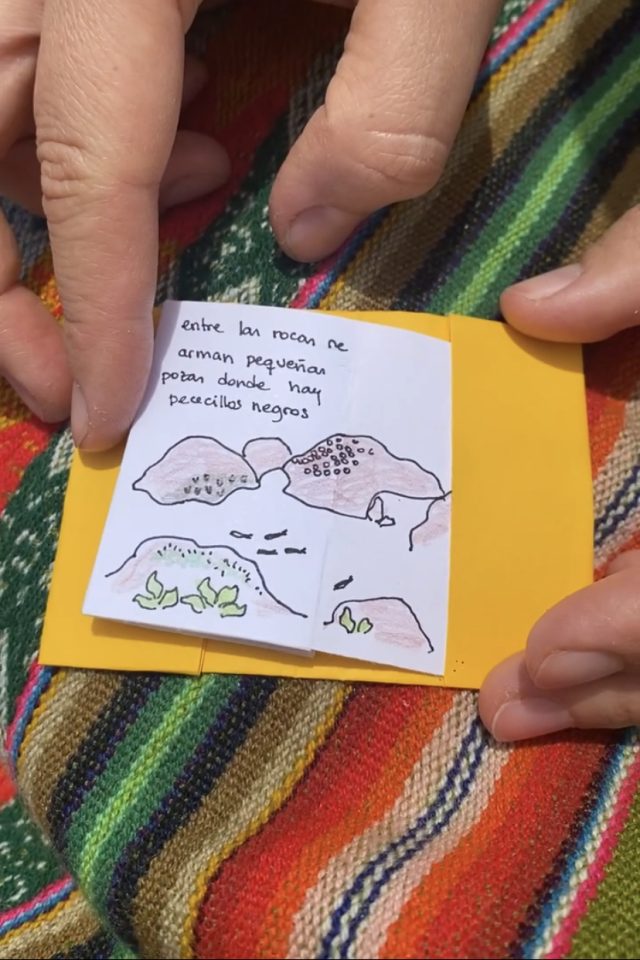 entre las rocas se
arman pequeñas
pozas donde hay
pececillos negros